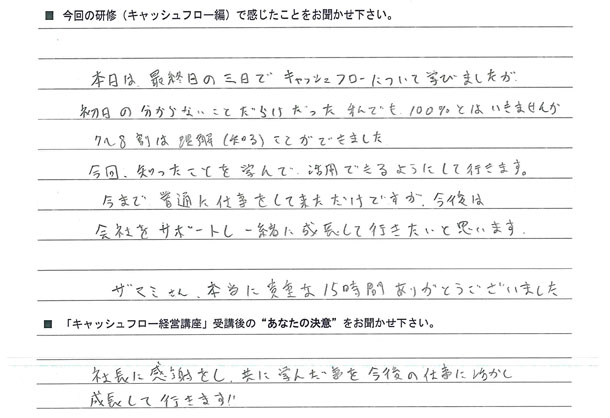 ■ 今回の研修（キャッシュフロー編）で感じたことをお聞かせ下さい。
本日は、最終日の三日で キャッシュフローについて学びましたが
初日の分からないことだらけだった 私でも、100％とはいきませんが
7ル8割は 理解（知る）ことができました
今回、知ったことを学んで、活用できるようにして行きます。
今まで 普通に仕事をして来ただけですが、今後は
会社をサポートし 一緒に成長して行きたいと思います。
ザマミさん、本当に貴重な15時間ありがとうございました
■ 「キャッシュフロー経営講座」受講後の“あなたの決意”をお聞かせ下さい。
社長に感謝をし、共に学んだ事を今後の仕事に活かし
成長して行きます!!